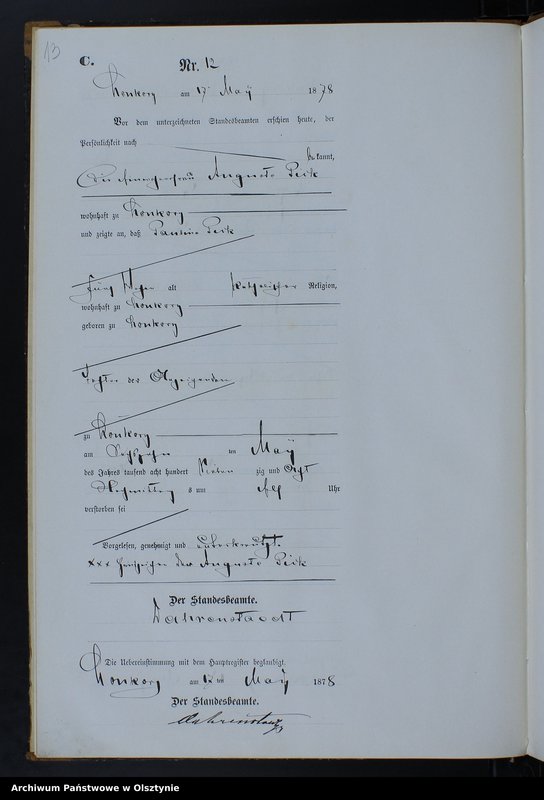 13
C.
Nr. 12
Konkory am 17 Maÿ 1878
Vor dem unterzeichneten Standesbeamten erschien heute, der
Persönlichkeit nach
bekannt,
die Auguste Peik
wohnhaft zu Konkory
und zeigte an, daß Pauline Peik
fünf alt katholischer Religion,
wohnhaft zu Konkory
geboren zu Konkory
Tochter der Anzeigenden
zu Konkory
am ten Maÿ
des Jahres tausend acht hundert sieben zig und acht
Nachmittag s um elf Uhr
verstorben sei
Vorgelesen, genehmigt und unterkreuzt.
xxx Handzeichen der Auguste Peik
Der Standesbeamte.
Die Uebereinstimmung mit dem Hauptregister beglaubigt.
Konkory am ten Maÿ 1878
Der Standesbeamte.
Archiwum Państwowe w Olsztynie